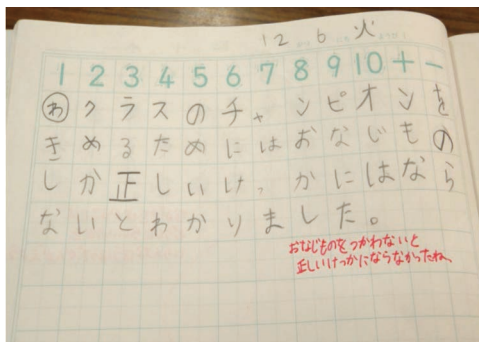 12 6 火
1 2 3 4 5 6 7 8 9 10 + 一
わ クラスのチャンピオンを
きめるためにはおなじもの
しか正しいけっかにはなら
ないとわかりました。
おなじものをつかわないと
正しいけっかにならなかったね。